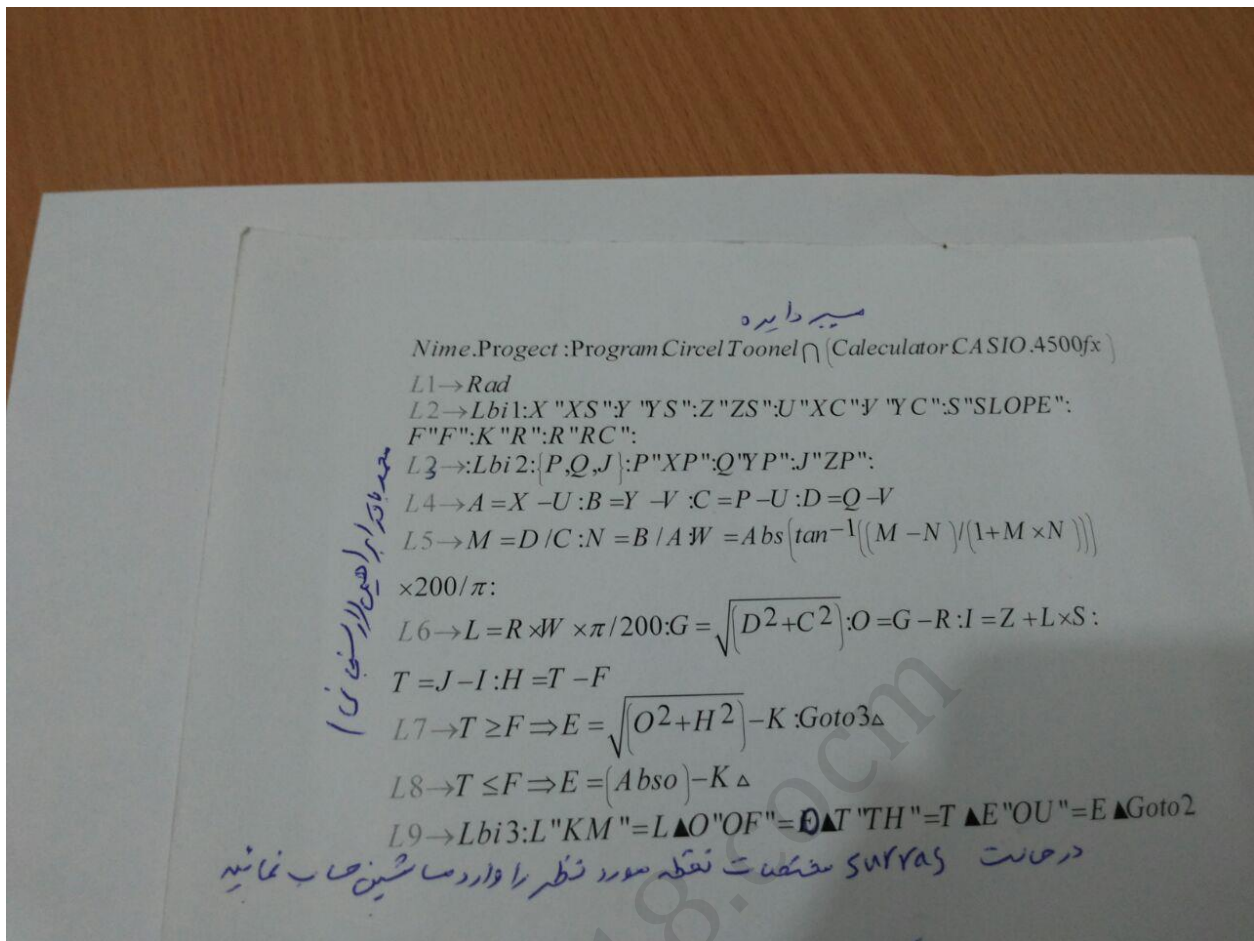 مسیر دایره
Nime.Progect :Program Circel Toonel ∩ (Caleculator CASIO.4500fx)
L1→Rad
L2→Lbi1:X "XS":Y "YS":Z"ZS":U"XC":V "YC":S"SLOPE":
F"F":K"R":R"RC":
L3→:Lbi2:{P,Q,J}:P"XP":Q"YP":J"ZP":
L4→A=X−U:B=Y−V:C=P−U:D=Q−V
L5→M=D/C:N=B/A:W=Abs(tan⁻¹((M−N)/(1+M×N)))
×200/π:
L6→L=R×W×π/200:G=√(D²+C²):O=G−R:I=Z+L×S:
T=J−I:H=T−F
L7→T≥F⇒E=√(O²+H²)−K:Goto3△
L8→T≤F⇒E=(Abso)−K△
L9→Lbi3:L"KM"=L▲O"OF"=O▲T"TH"=T▲E"OU"=E▲Goto2
در حالت survas مختصات نقطه مورد نظر را وارد ماشین حساب نمائید
محمد باقر ابراهیمی